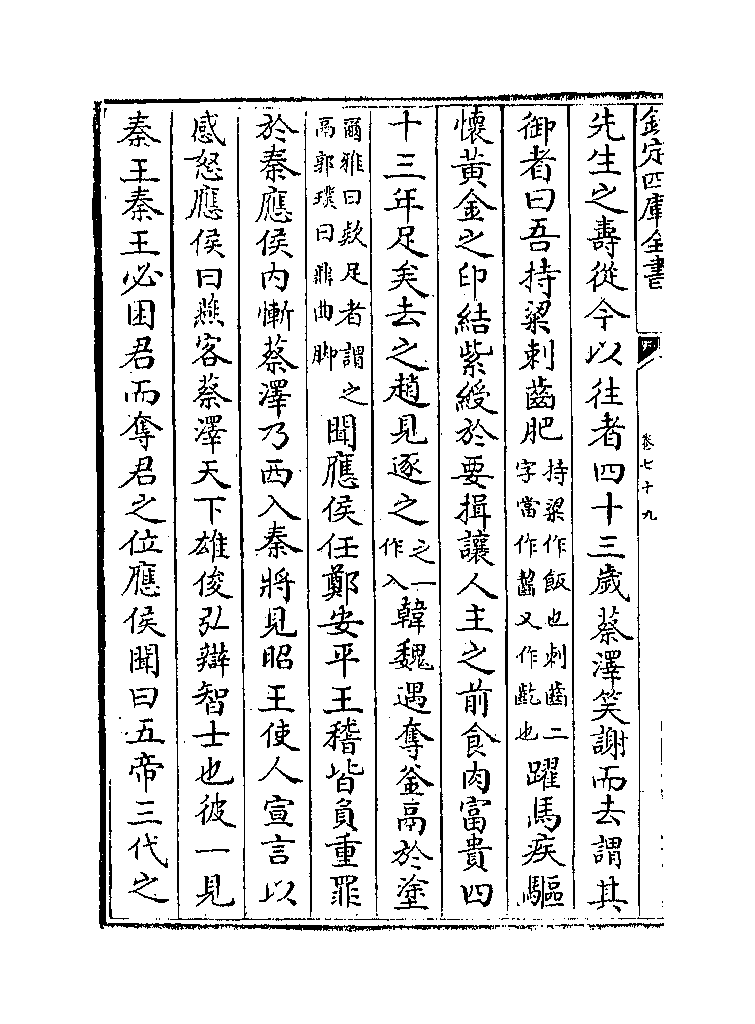 欽定四庫全書
卷七十九
先生之壽從今以往者四十三歲蔡澤笑謝而去謂其
御者曰吾持粱刺齒肥持粱作飯也刺齒二字當作齧又作齕也躍馬疾驅
懷黃金之印結紫綬於要揖讓人主之前食肉富貴四
十三年足矣去之趙見逐之之一作入韓魏遇奪釜鬲於塗
爾雅曰款足者謂之鬲郭璞曰鼎曲腳聞應侯任鄭安平王稽皆負重罪
於秦應侯內慚蔡澤乃西入秦將見昭王使人宣言以
感怒應侯曰燕客蔡澤天下雄俊弘辯智士也彼一見
秦王秦王必困君而奪君之位應侯聞曰五帝三代之